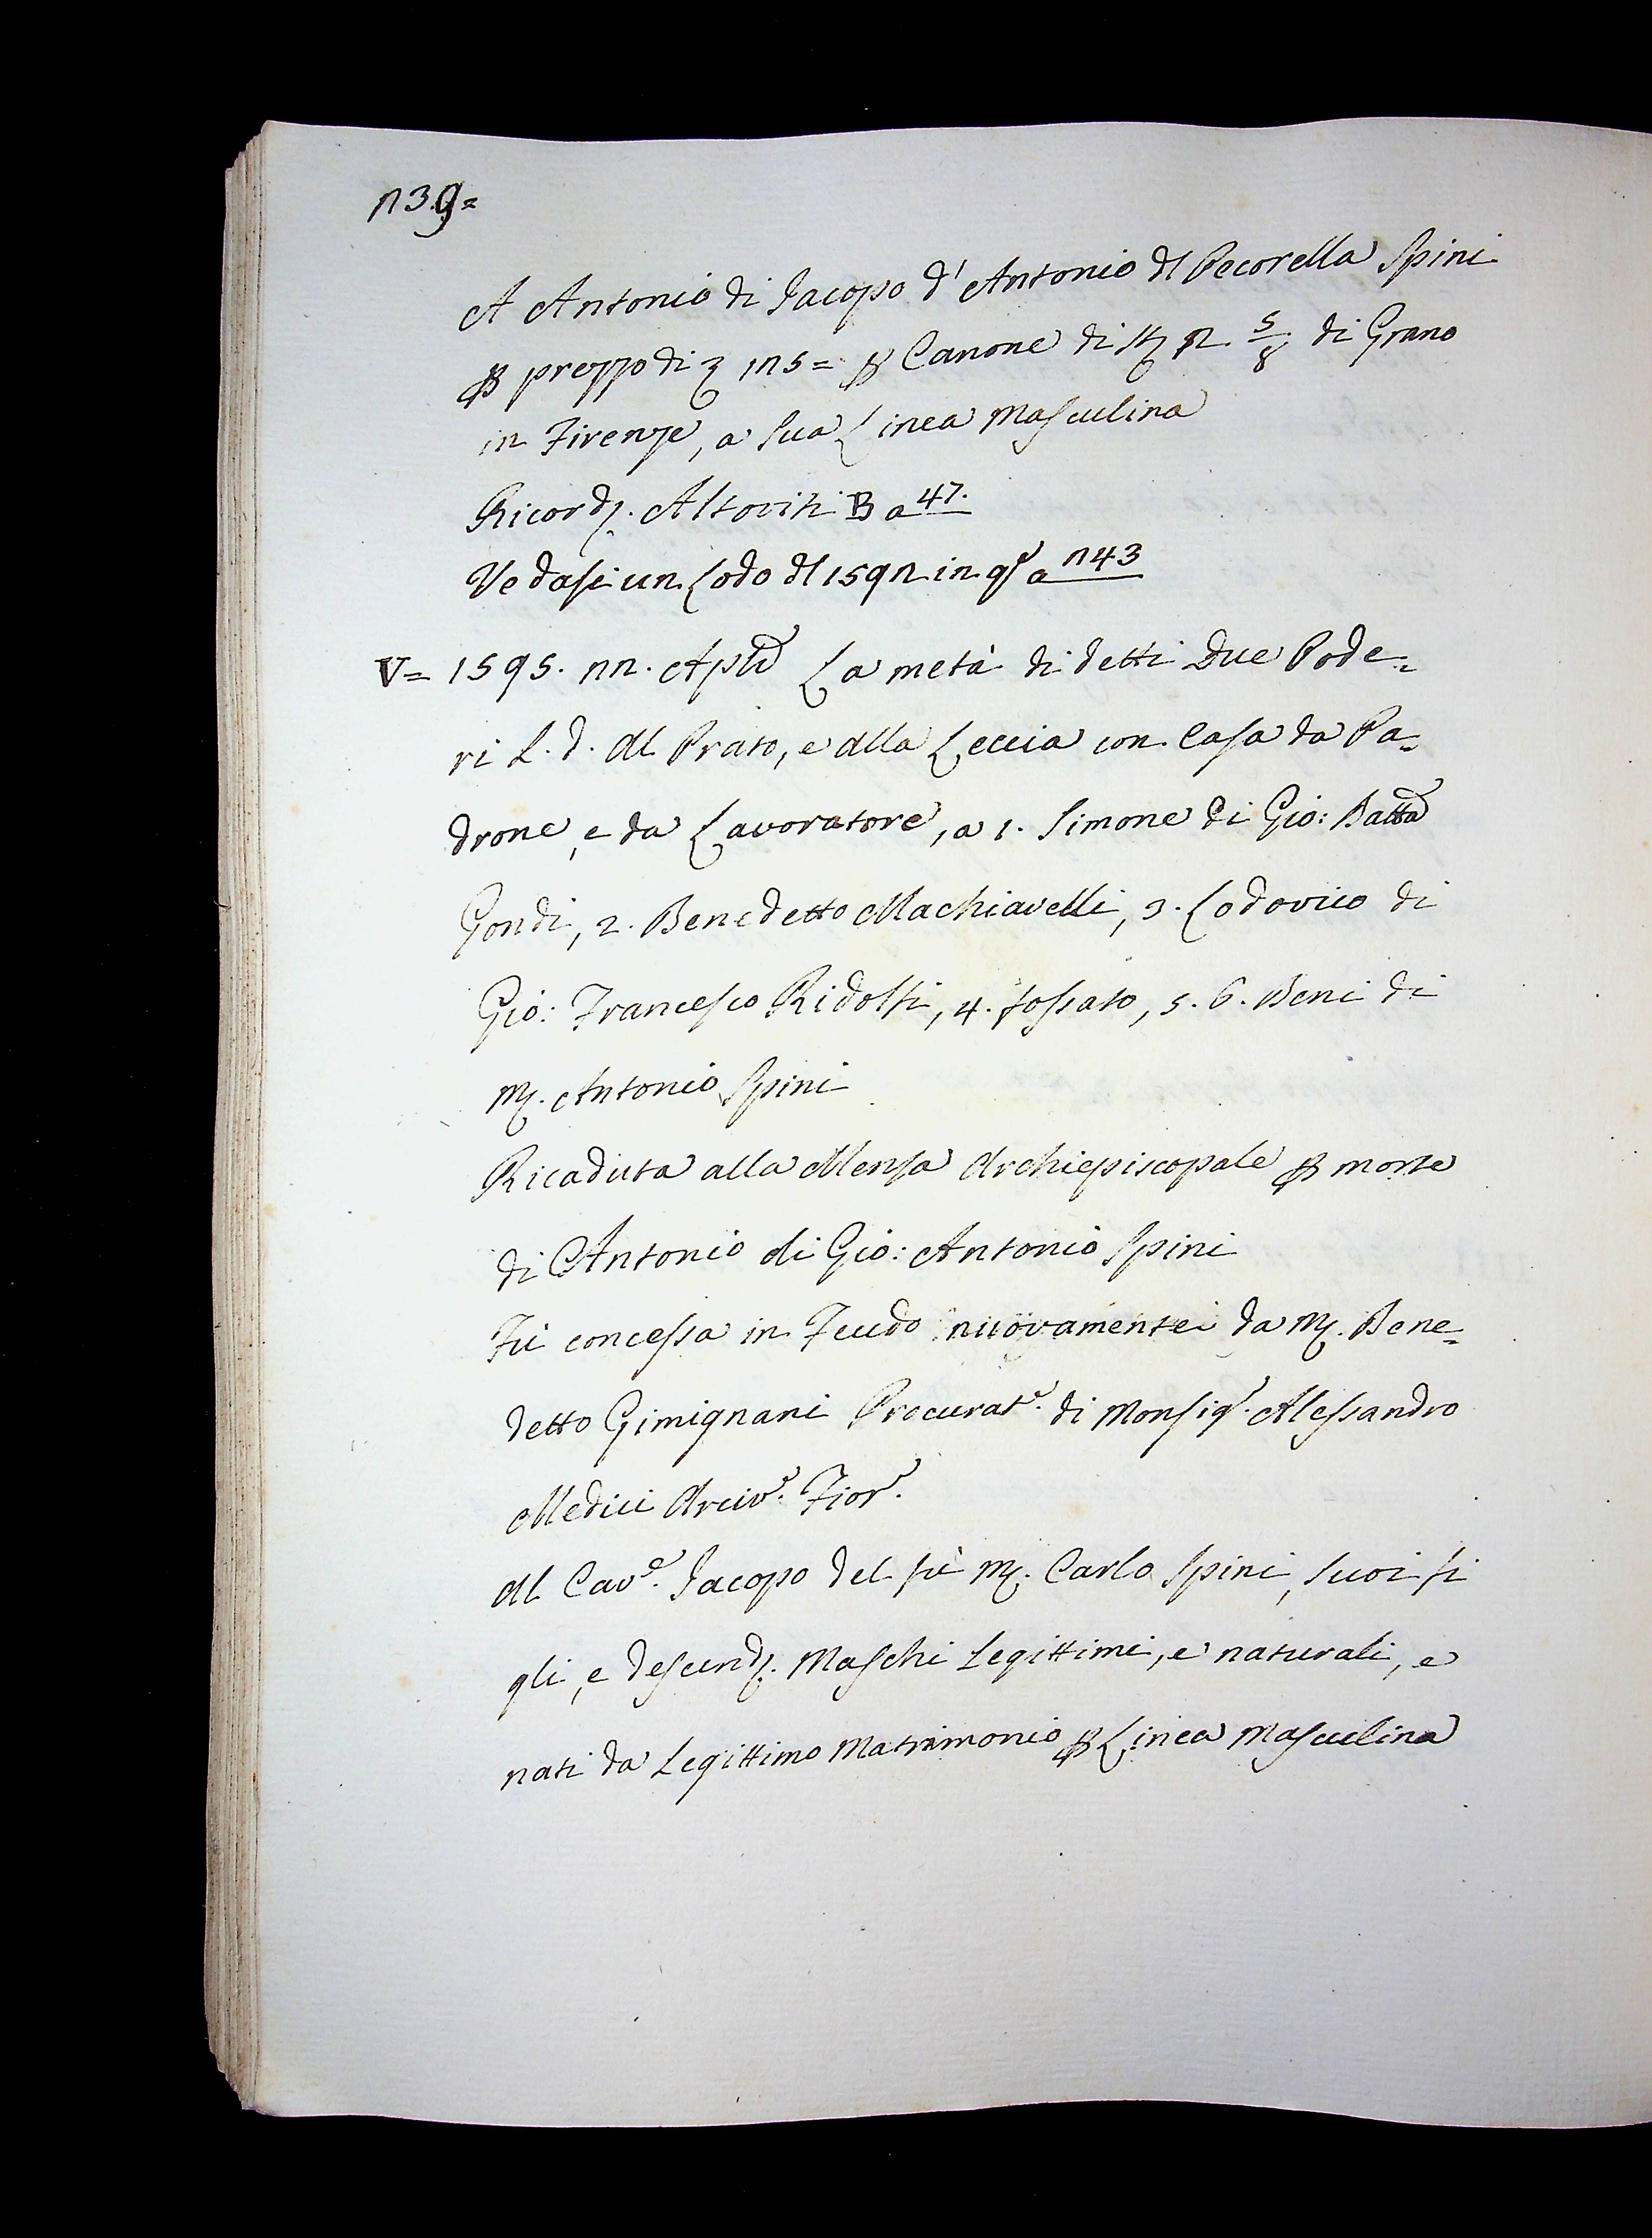 n39=
A Antonio di Jacopo d' Antonio dl Pecorella Spini
p prezzo di 1n5= p Canone di n 5/8 di Grano
in Firenze, a sua Linea Masculina
Ricord. Altoviti B a 47.
Vedasi un Lodo dl 159n in qs a n43
V= 1595. nn. Aple La metà di detti Due Pode=
ri L. d. Al Prato, e alla Leccia con Casa da Pa=
drone, e da Lavoratore, a 1. Simone di Gio: Batta
Gondi, 2. Benedetto Machiavelli, 3. Lodovico di
Gio: Francesco Ridolfi, 4. fossato, 5. 6. Beni di
M. Antonio Spini
Ricaduta alla Mensa Archiepiscopale p morte
di Antonio di Gio: Antonio Spini
Fù concessa in Feudo nuovamente da M. Bene=
detto Gimignani Procurate. di Monsigr. Alessandro
Medici Arcivo. Fiore.
Al Cave. Jacopo del fù M. Carlo Spini, suoi fi
gli, e descend. Maschi Legittimi, e naturali, e
nati da Legittimo Matrimonio p Linea Masculina